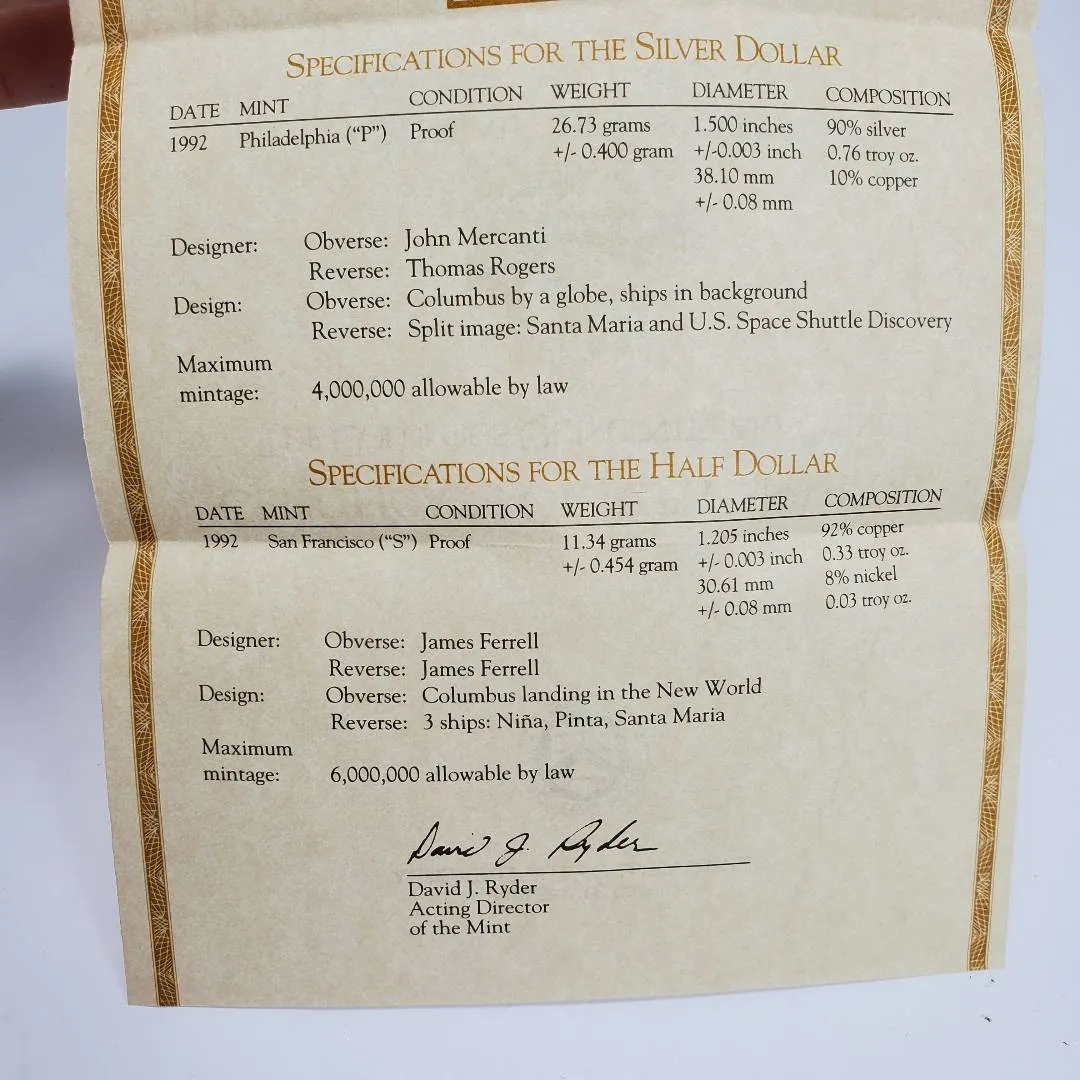 SPECIFICATIONS FOR THE SILVER DOLLAR
DATE MINT CONDITION WEIGHT DIAMETER COMPOSITION
1992 Philadelphia (“P”) Proof 26.73 grams 1.500 inches 90% silver
+/- 0.400 gram +/-0.003 inch 0.76 troy oz.
38.10 mm 10% copper
+/- 0.08 mm
Designer: Obverse: John Mercanti
Reverse: Thomas Rogers
Design: Obverse: Columbus by a globe, ships in background
Reverse: Split image: Santa Maria and U.S. Space Shuttle Discovery
Maximum
mintage: 4,000,000 allowable by law
SPECIFICATIONS FOR THE HALF DOLLAR
DATE MINT CONDITION WEIGHT DIAMETER COMPOSITION
1992 San Francisco (“S”) Proof 11.34 grams 1.205 inches 92% copper
+/- 0.454 gram +/- 0.003 inch 0.33 troy oz.
30.61 mm 8% nickel
+/- 0.08 mm 0.03 troy oz.
Designer: Obverse: James Ferrell
Reverse: James Ferrell
Design: Obverse: Columbus landing in the New World
Reverse: 3 ships: Niña, Pinta, Santa Maria
Maximum
mintage: 6,000,000 allowable by law
David J. Ryder
David J. Ryder
Acting Director
of the Mint